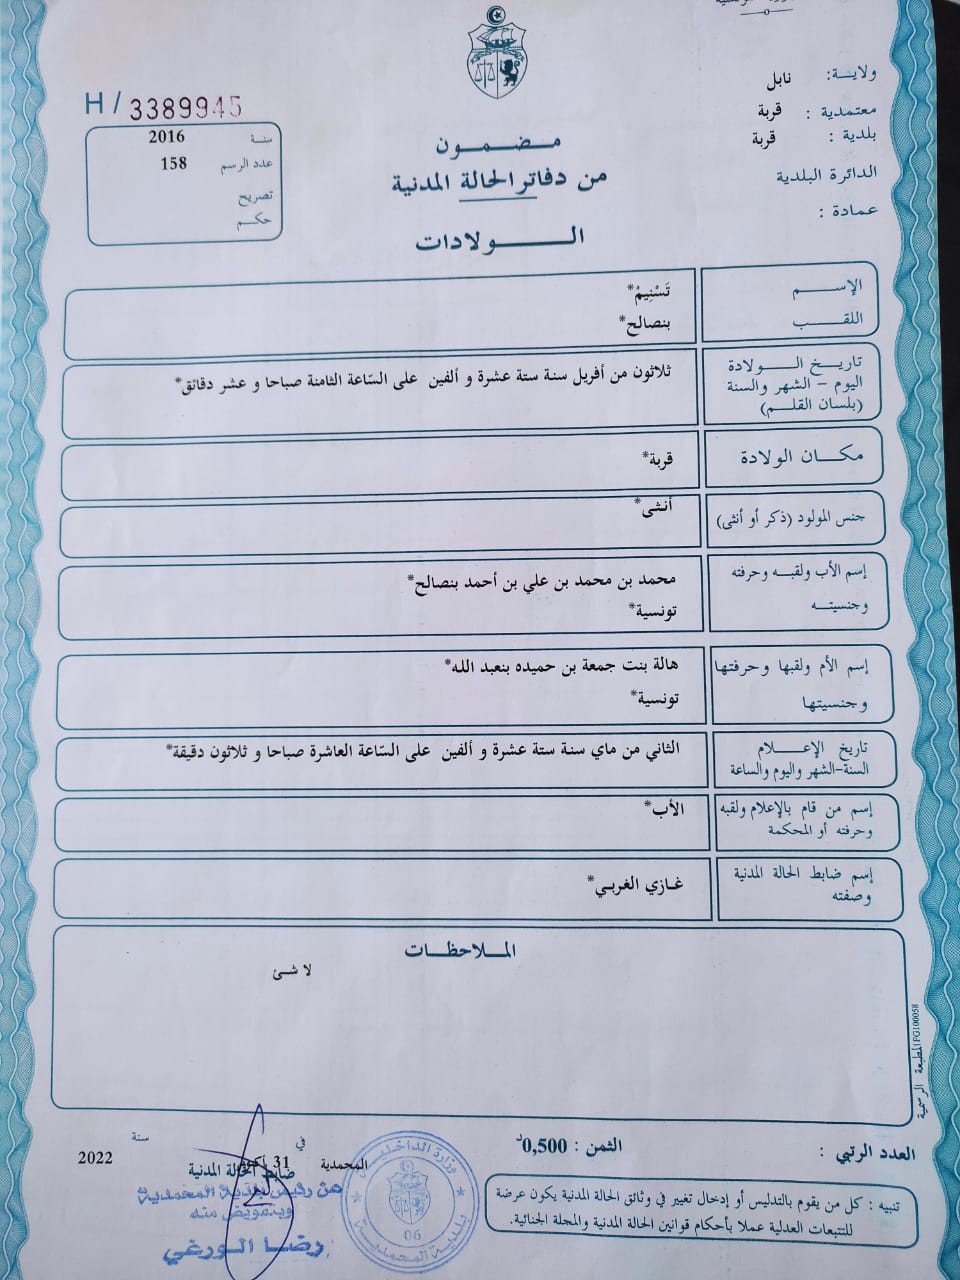 ولايـــة: نابل
معتمدية : قربة
بلدية : قربة
الدائرة البلدية
عمادة :
H / 3389945
سنـة 2016
عدد الرسم 158
تصريح
حكـــم
مـضــمــون
من دفاتر الحالة المدنية
الــــــولادات
الإســــم تَسْنِيمْ*
اللقــــب بنصالح*
تاريــخ الــولادة
اليوم – الشهر والسنة
(بلسان القلـــم)
ثلاثون من أفريل سنة ستة عشرة و ألفين على السّاعة الثامنة صباحا و عشر دقائق*
مكـــان الولادة قربة*
جنس المولود (ذكر أو أنثى) أنثى*
إسم الأب ولقبـــه وحرفته
وجنسيتــه
محمد بن محمد بن علي بن أحمد بنصالح*
تونسية*
إسم الأم ولقبها وحرفتها
وجنسيتها
هالة بنت جمعة بن حميده بنعبد الله*
تونسية*
تاريخ الإعـــلام
السنة-الشهر واليوم والساعة
الثاني من ماي سنة ستة عشرة و ألفين على السّاعة العاشرة صباحا و ثلاثون دقيقة*
إسم من قام بالإعلام ولقبه
وحرفته أو المحكمة
الأب*
إسم ضابط الحالة المدنية
وصفته
غازي الغربي*
المــلاحظــات
لا شئ
المطبعة الرسمية FG100058
العدد الرتبي :
الثمن : 0,500د
تنبيه : كل من يقوم بالتدليس أو إدخال تغيير في وثائق الحالة المدنية يكون عرضة
للتتبعات العدلية عملا بأحكام قوانين الحالة المدنية والمجلة الجنائية.
المحمدية في 31 سنة 2022
ضابط الحالة المدنية
عن رئيس بلدية المحمدية
وبتفويض منه
رضا الورغي
وزارة الداخلية
بلدية المحمدية
06